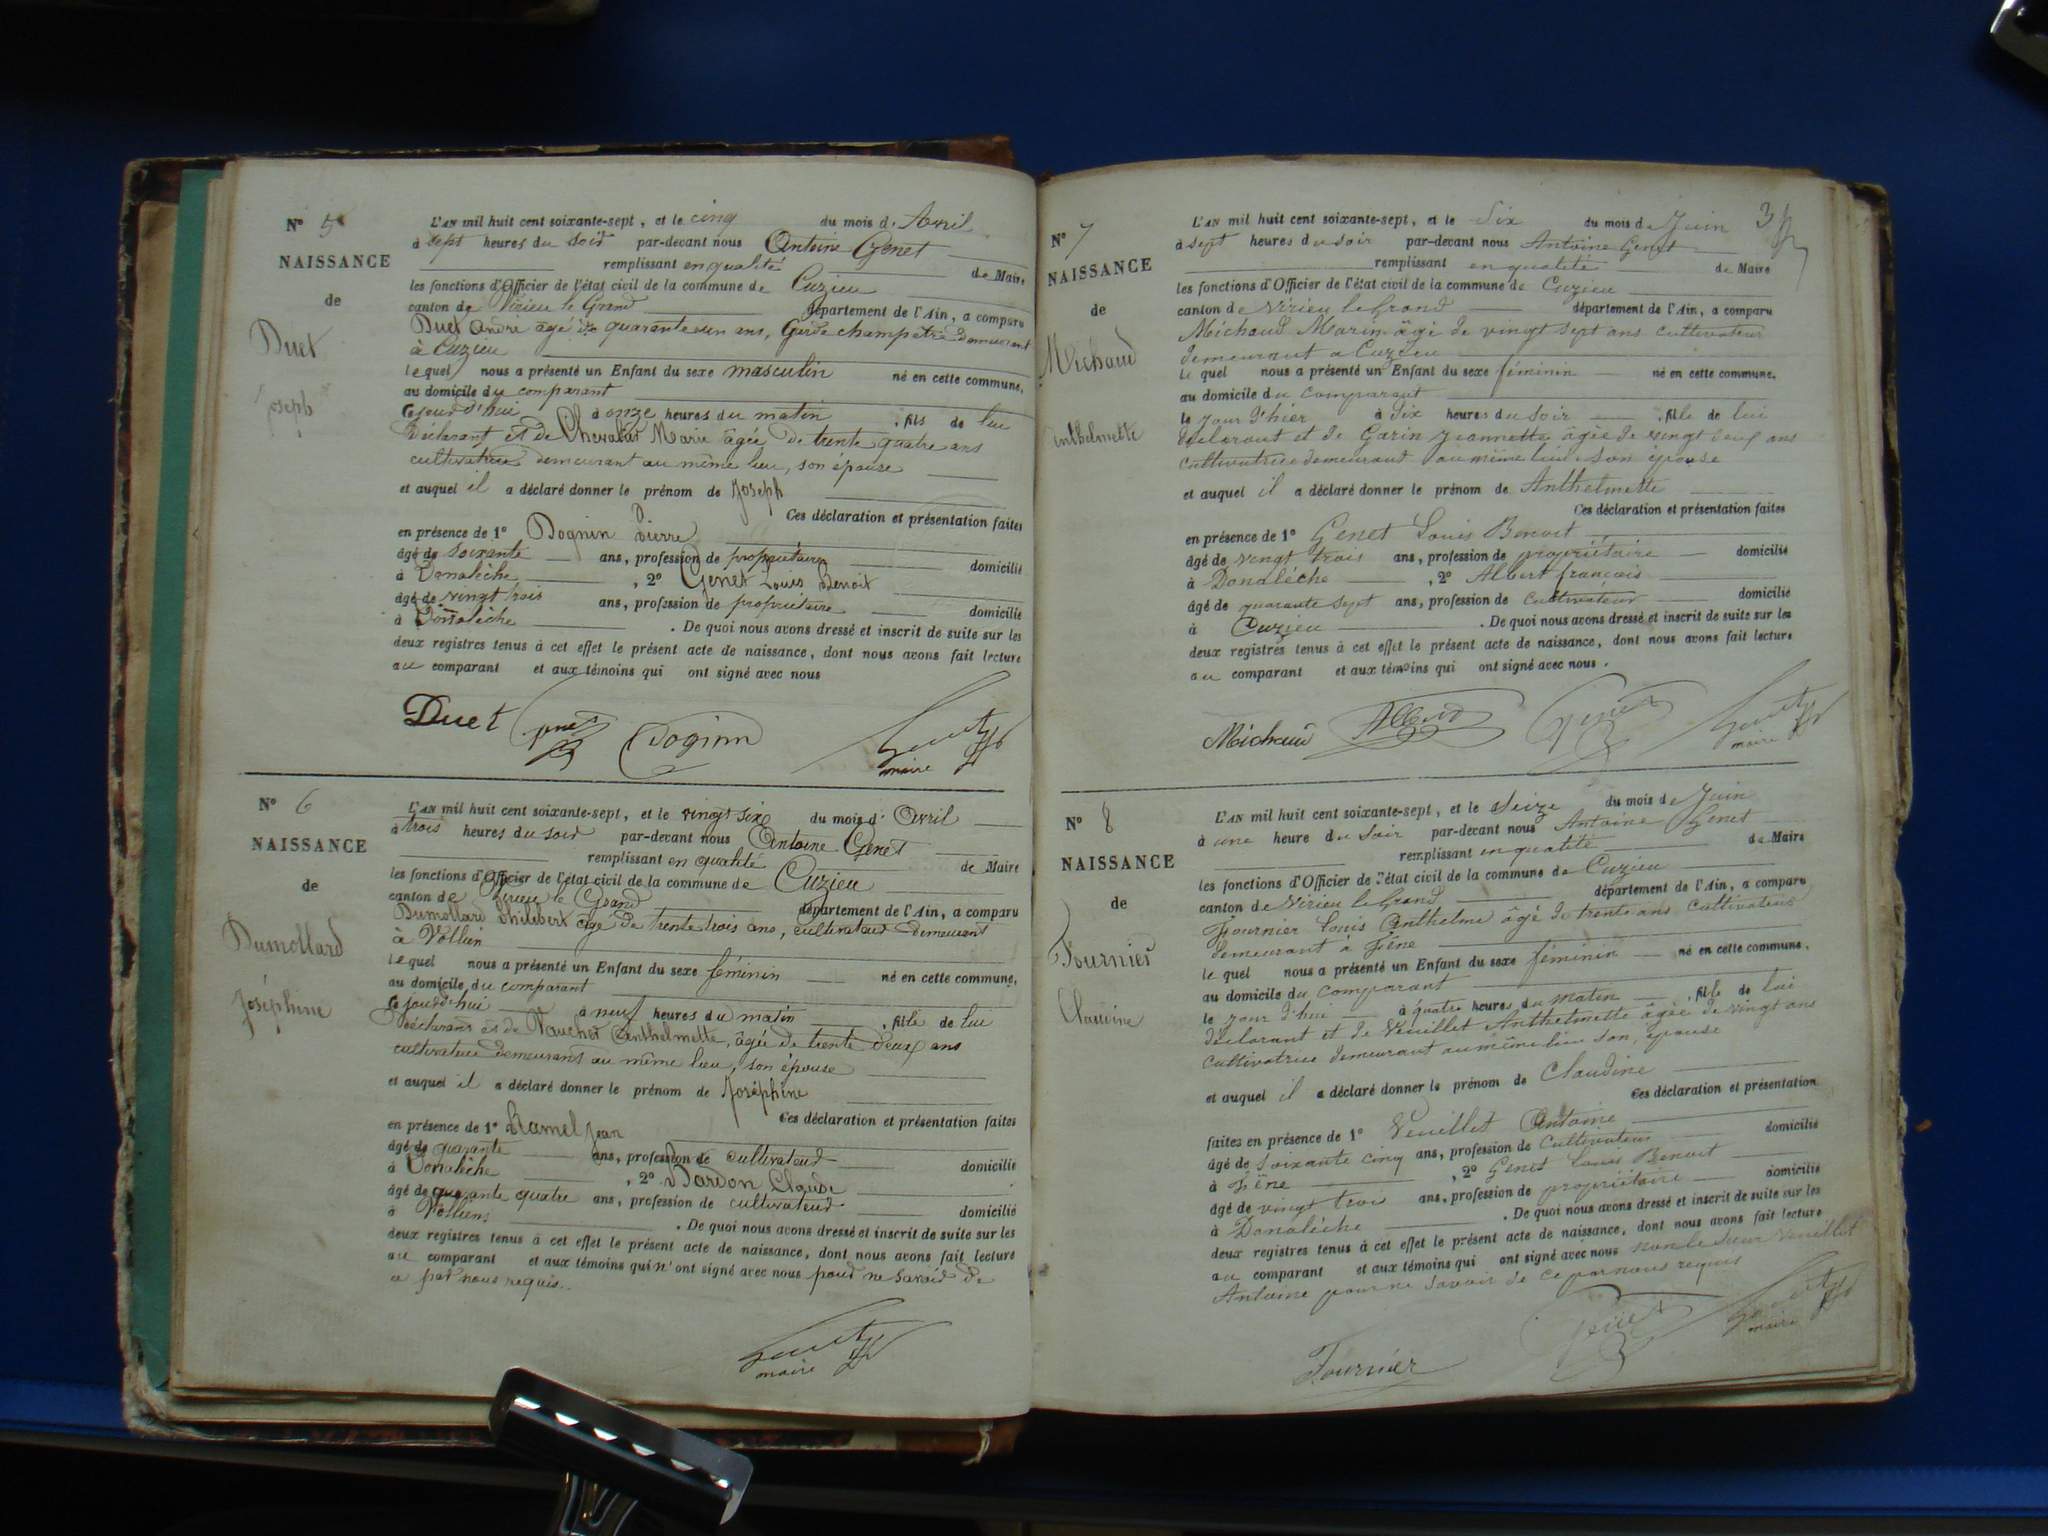 N° 5
NAISSANCE
de
Duet
Joseph
L'AN mil huit cent soixante-sept, et le cinq du mois d' Avril
à sept heures du soir par-devant nous Antoine Genet
remplissant en qualité de Maire
les fonctions d'Officier de l'état civil de la commune de Cuzieu
canton de Virieu le Grand département de l'Ain, a comparu
Duet André âgé de quarante un ans, Garde champêtre demeurant
à Cuzieu
le quel nous a présenté un Enfant du sexe masculin né en cette commune,
au domicile du comparant
Ce jourd'hui à onze heures du matin, fils de lui
déclarant et de Chevalier Marie âgée de trente quatre ans
cultivatrice demeurant au même lieu, son épouse
et auquel il a déclaré donner le prénom de Joseph
Ces déclaration et présentation faites
en présence de 1° Dognin Pierre
âgé de soixante ans, profession de propriétaire domicilié
à Donalèche, 2° Genet Louis Benoit
âgé de vingt trois ans, profession de propriétaire domicilié
à Donalèche. De quoi nous avons dressé et inscrit de suite sur les
deux registres tenus à cet effet le présent acte de naissance, dont nous avons fait lecture
au comparant et aux témoins qui ont signé avec nous
Duet Genet Dognin
maire
N° 6
NAISSANCE
de
Dumollard
Joséphine
L'AN mil huit cent soixante-sept, et le vingt six du mois d' Avril
à trois heures du soir par-devant nous Antoine Genet
remplissant en qualité de Maire
les fonctions d'Officier de l'état civil de la commune de Cuzieu
canton de Virieu le Grand département de l'Ain, a comparu
Dumollard Philibert âgé de trente trois ans, cultivateur demeurant
à Vollien
le quel nous a présenté un Enfant du sexe féminin né en cette commune,
au domicile du comparant
Ce jourd'hui à neuf heures du matin, fille de lui
déclarant et de Vaucher Anthelmette, âgée de trente deux ans
cultivatrice demeurant au même lieu, son épouse
et auquel il a déclaré donner le prénom de Joséphine
Ces déclaration et présentation faites
en présence de 1° Hamel Jean
âgé de quarante ans, profession de cultivateur domicilié
à Donalèche, 2° Bardon Claude
âgé de quarante quatre ans, profession de cultivateur domicilié
à Volliens. De quoi nous avons dressé et inscrit de suite sur les
deux registres tenus à cet effet le présent acte de naissance, dont nous avons fait lecture
au comparant et aux témoins qui n'ont signé avec nous pour ne savoir de
ce par nous requis.
maire
N° 7
NAISSANCE
de
Michaud
Anthelmette
L'AN mil huit cent soixante-sept, et le Six du mois de Juin
à sept heures du soir par-devant nous Antoine Genet
remplissant en qualité de Maire
les fonctions d'Officier de l'état civil de la commune de Cuzieu
canton de Virieu le Grand département de l'Ain, a comparu
Michaud Marin âgé de vingt sept ans cultivateur
demeurant a Cuzieu
le quel nous a présenté un Enfant du sexe féminin né en cette commune,
au domicile du comparant
le jour d'hier à dix heures du soir, fille de lui
déclarant et de Garin Jeannette âgée de vingt deux ans
cultivatrice demeurant au même lieu son épouse
et auquel il a déclaré donner le prénom de Anthelmette
Ces déclaration et présentation faites
en présence de 1° Genet Louis Benoit
âgé de vingt trois ans, profession de propriétaire domicilié
à Donalèche, 2° Albert françois
âgé de quarante sept ans, profession de Cultivateur domicilié
à Cuzieu. De quoi nous avons dressé et inscrit de suite sur les
deux registres tenus à cet effet le présent acte de naissance, dont nous avons fait lecture
au comparant et aux témoins qui ont signé avec nous.
Michaud Albert Genet
maire
N° 8
NAISSANCE
de
Fournier
Claudine
L'AN mil huit cent soixante-sept, et le Seize du mois de Juin
à une heure du soir par-devant nous Antoine Genet
remplissant en qualité de Maire
les fonctions d'Officier de l'état civil de la commune de Cuzieu
canton de Virieu le Grand département de l'Ain, a comparu
Fournier Louis Anthelme âgé de trente ans cultivateur
demeurant à
le quel nous a présenté un Enfant du sexe féminin né en cette commune,
au domicile du comparant
le jour d'hui à quatre heures du matin, fille de lui
déclarant et de Veuillet Anthelmette âgée de vingt ans
cultivatrice demeurant au même lieu son épouse
et auquel il a déclaré donner le prénom de Claudine
Ces déclaration et présentation
faites en présence de 1° Veuillet Antoine
âgé de soixante cinq ans, profession de Cultivateur domicilié
à, 2° Genet Louis Benoit
âgé de vingt trois ans, profession de propriétaire domicilié
à Donalèche. De quoi nous avons dressé et inscrit de suite sur les
deux registres tenus à cet effet le présent acte de naissance, dont nous avons fait lecture
au comparant et aux témoins qui ont signé avec nous non le sieur Veuillet
Antoine pour ne savoir de ce par nous requis
Fournier Genet
maire